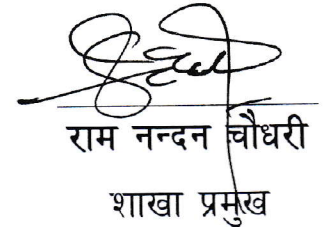 राम नन्दन चौधरी
शाखा प्रमुख